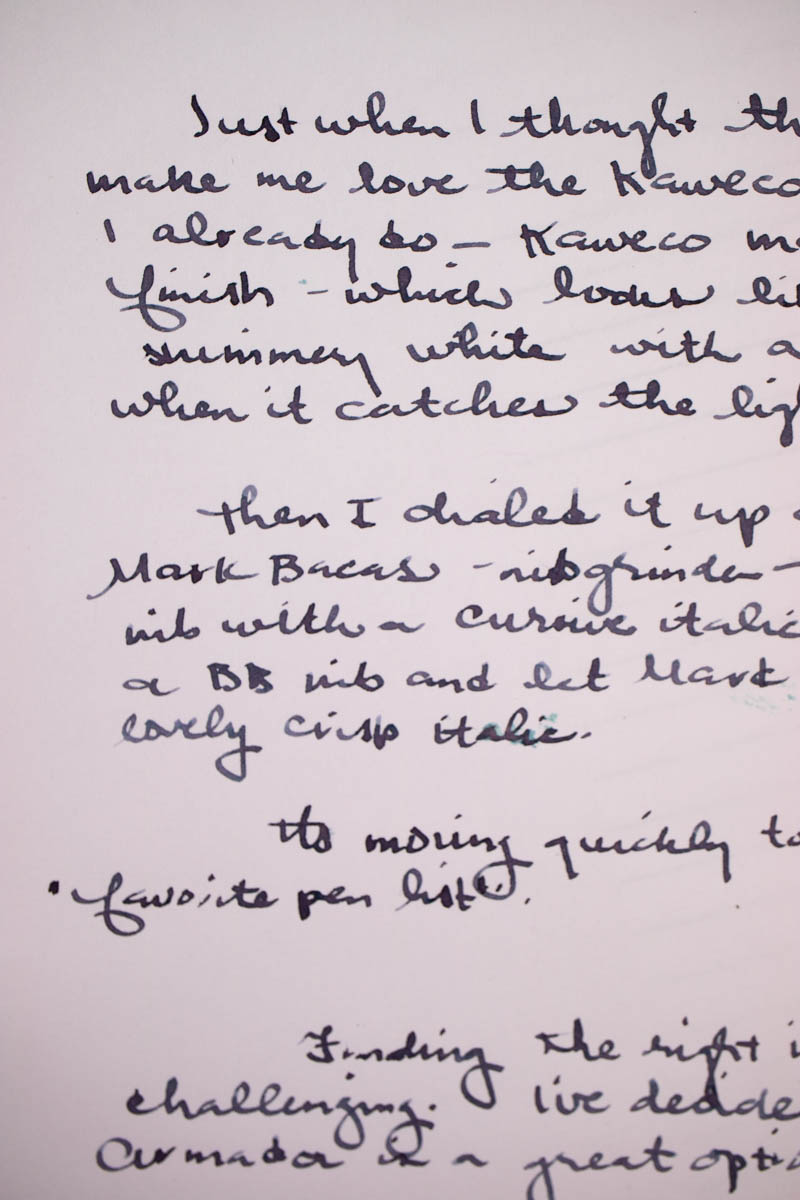 Just when I thought th
make me love the Kaweco
I already do — Kaweco ma
finish - which looks li
shimmery white with a
when it catches the lig
then I dialed it up a
Mark Bacas - nibgrinder -
nib with a cursive italic
a BB nib and let Mark
lovely crisp italic.
Its moving quickly to
"favorite pen list".
Finding the right i
challenging. I've decide
Armador is a great optio